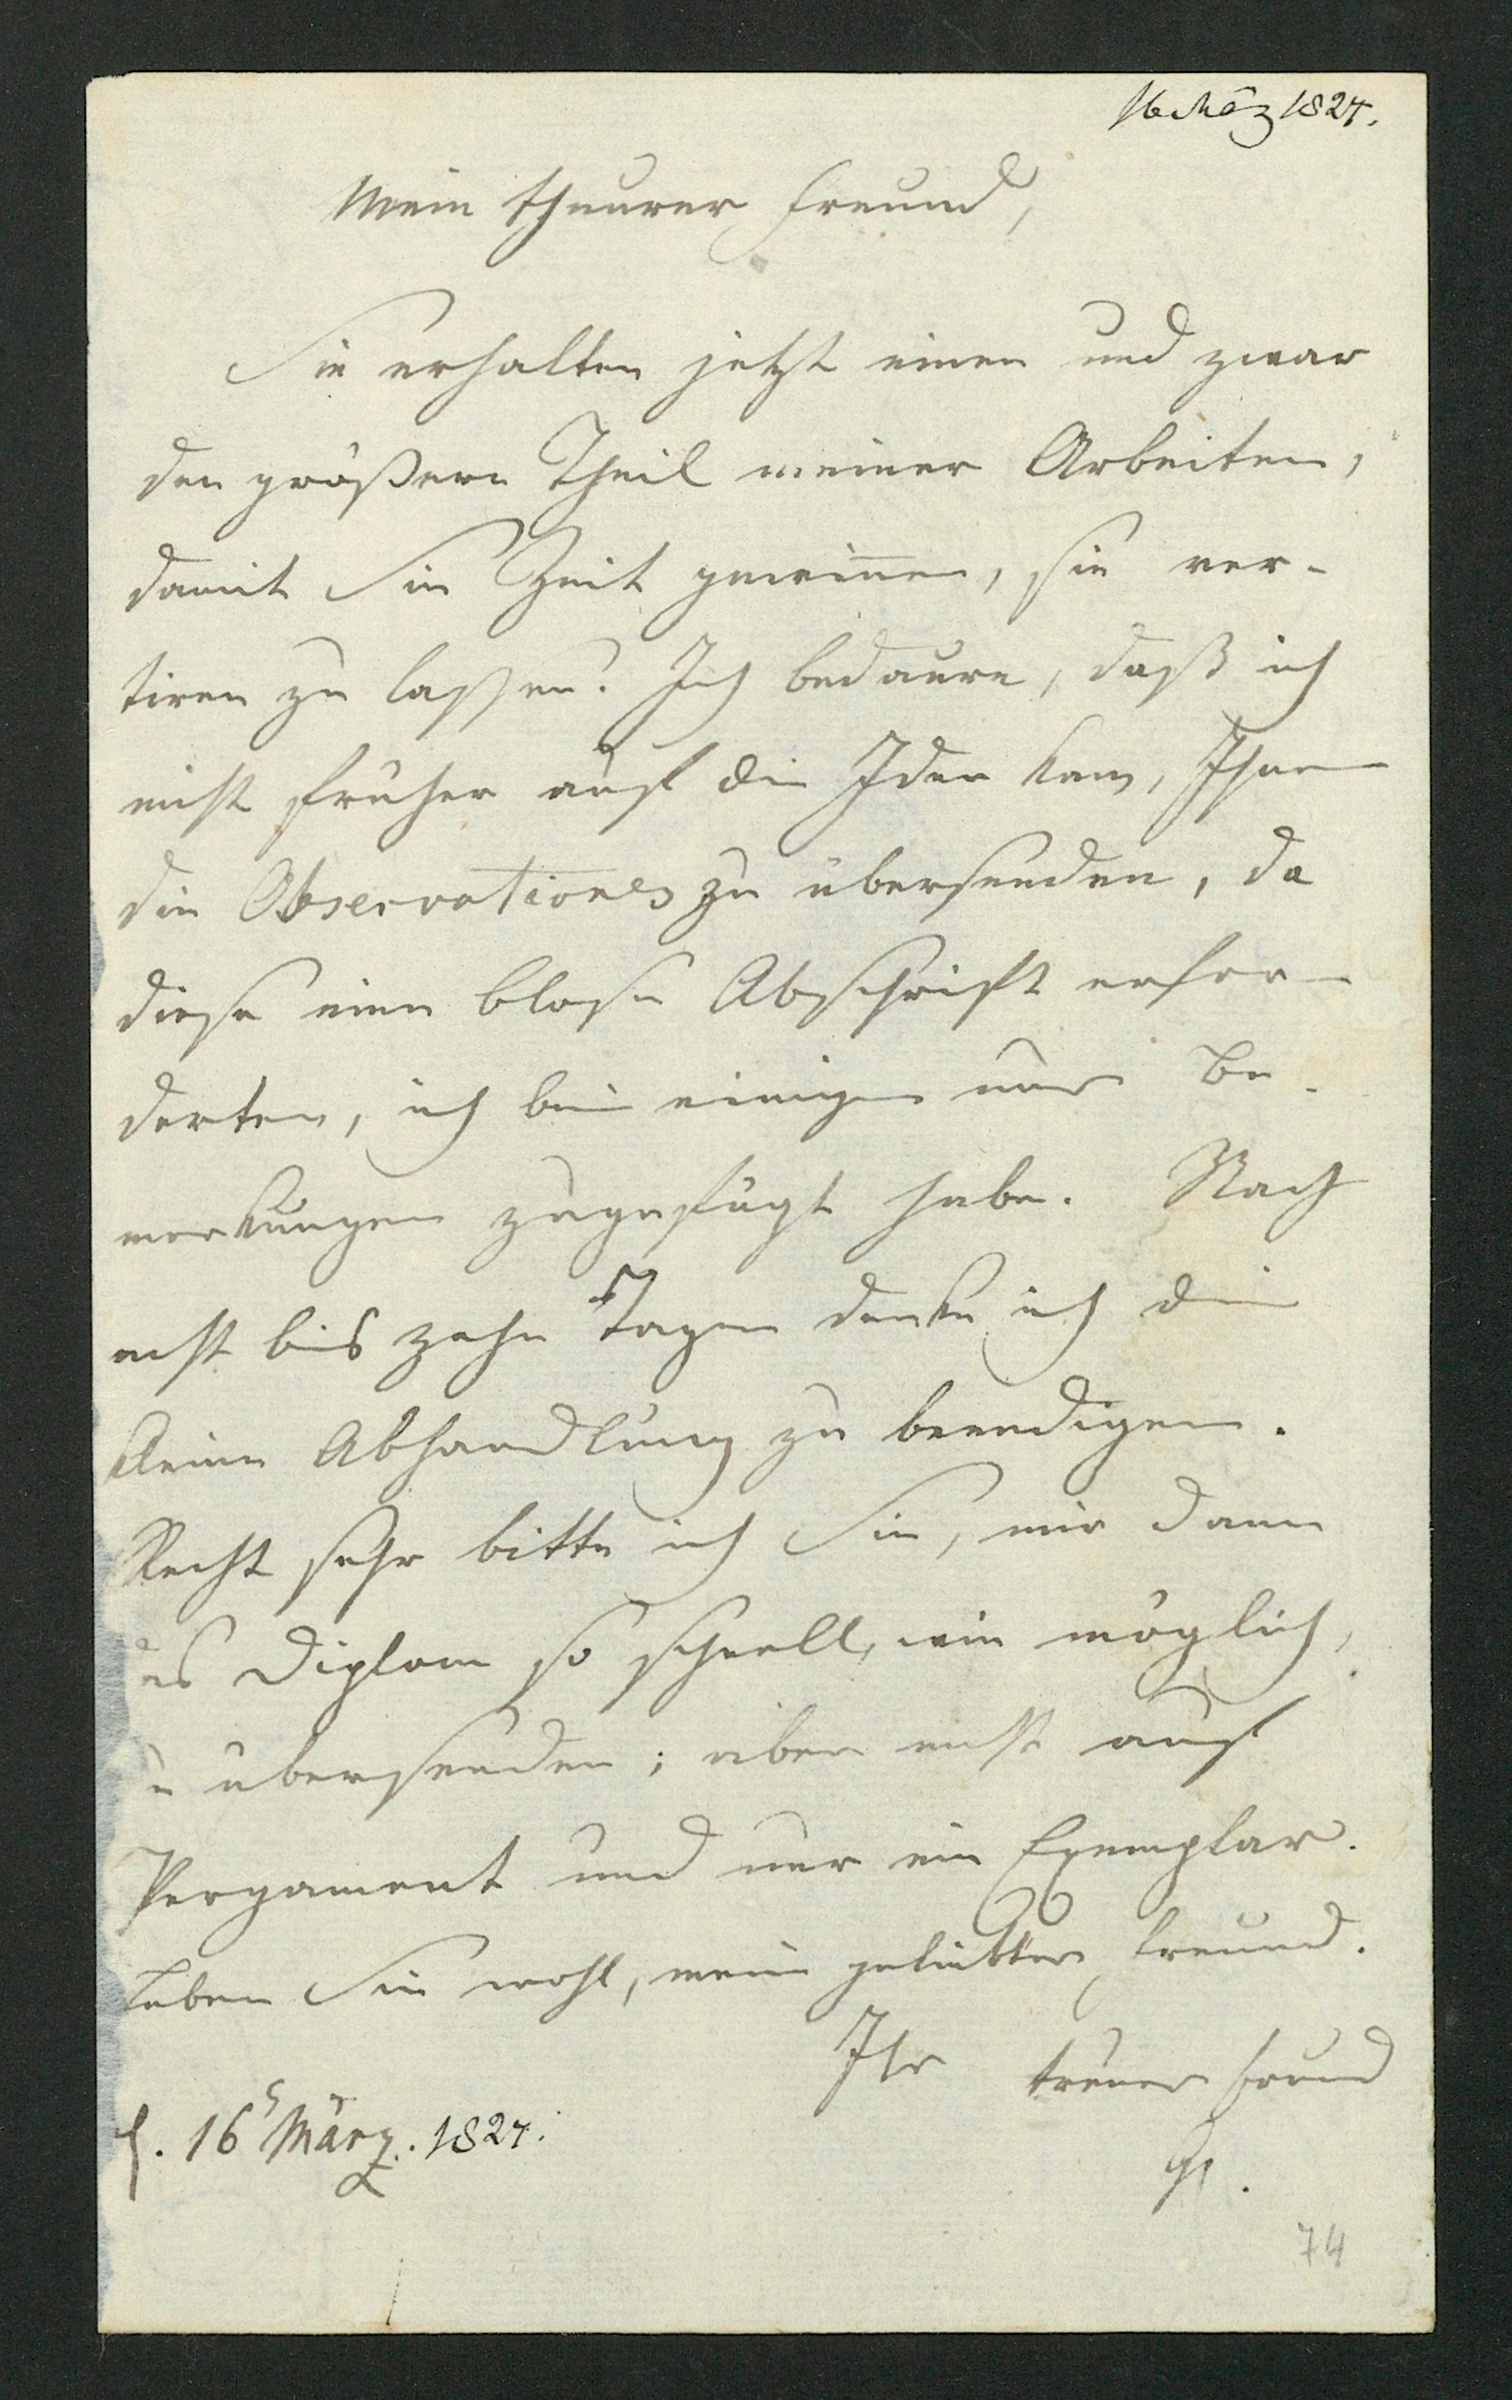 16 März 1824.
Mein theurer Freund,
Sie erhalten jetzt einen und zwar
den größern Theil meiner Arbeiten,
damit Sie Zeit gewin̅en, sie ver-
tiren zu lassen. Ich bedaure, daß ich
nicht früher auf die Idee kam, Ihnen
die Observationes zu übersenden, da
diese eine blose Abschrift erfor-
derten, ich bei einigen nur Be-
merkungen zugefügt habe. Nach
acht bis zehn Tagen denke ich die
kleine Abhandlung zu beendigen.
Recht sehr bitte ich Sie, mir dann
das Diplom so schnell, wie möglich,
zu übersenden; aber nicht auf
Pergament und nur ein Exemplar.
Leben Sie wohl, mein geliebter Freund.
Ihr treuer Freund
16 März. 1824.
74